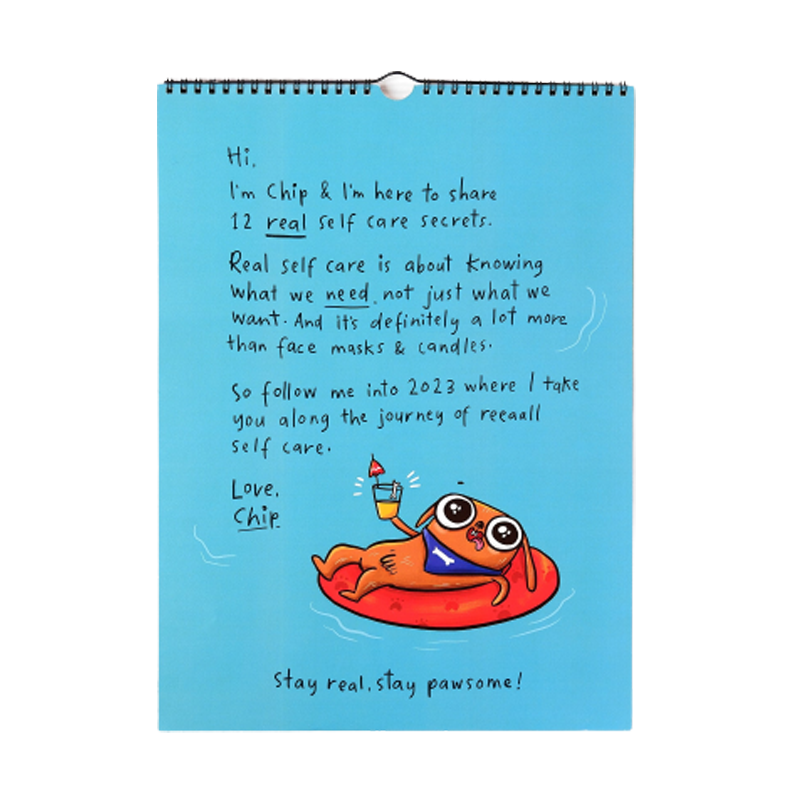 Hi,
I'm Chip & I'm here to share
12 real self care secrets.
Real self care is about knowing
what we need, not just what we
want. And it's definitely a lot more
than face masks & candles.
So follow me into 2023 where I take
you along the journey of reeaall
self care.
Love,
Chip
Stay real, stay pawsome!